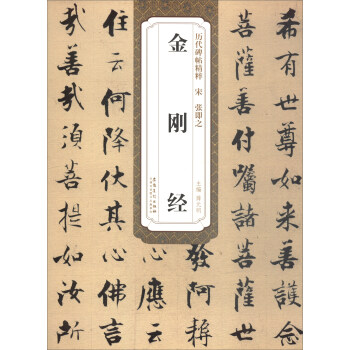 希有世尊如来善護念
菩薩善付囑諸菩薩
發阿耨
心應云
住云何降伏其心佛言
哉善哉須菩提如汝所
历代碑帖精粹 宋 张即之
金刚经
主编